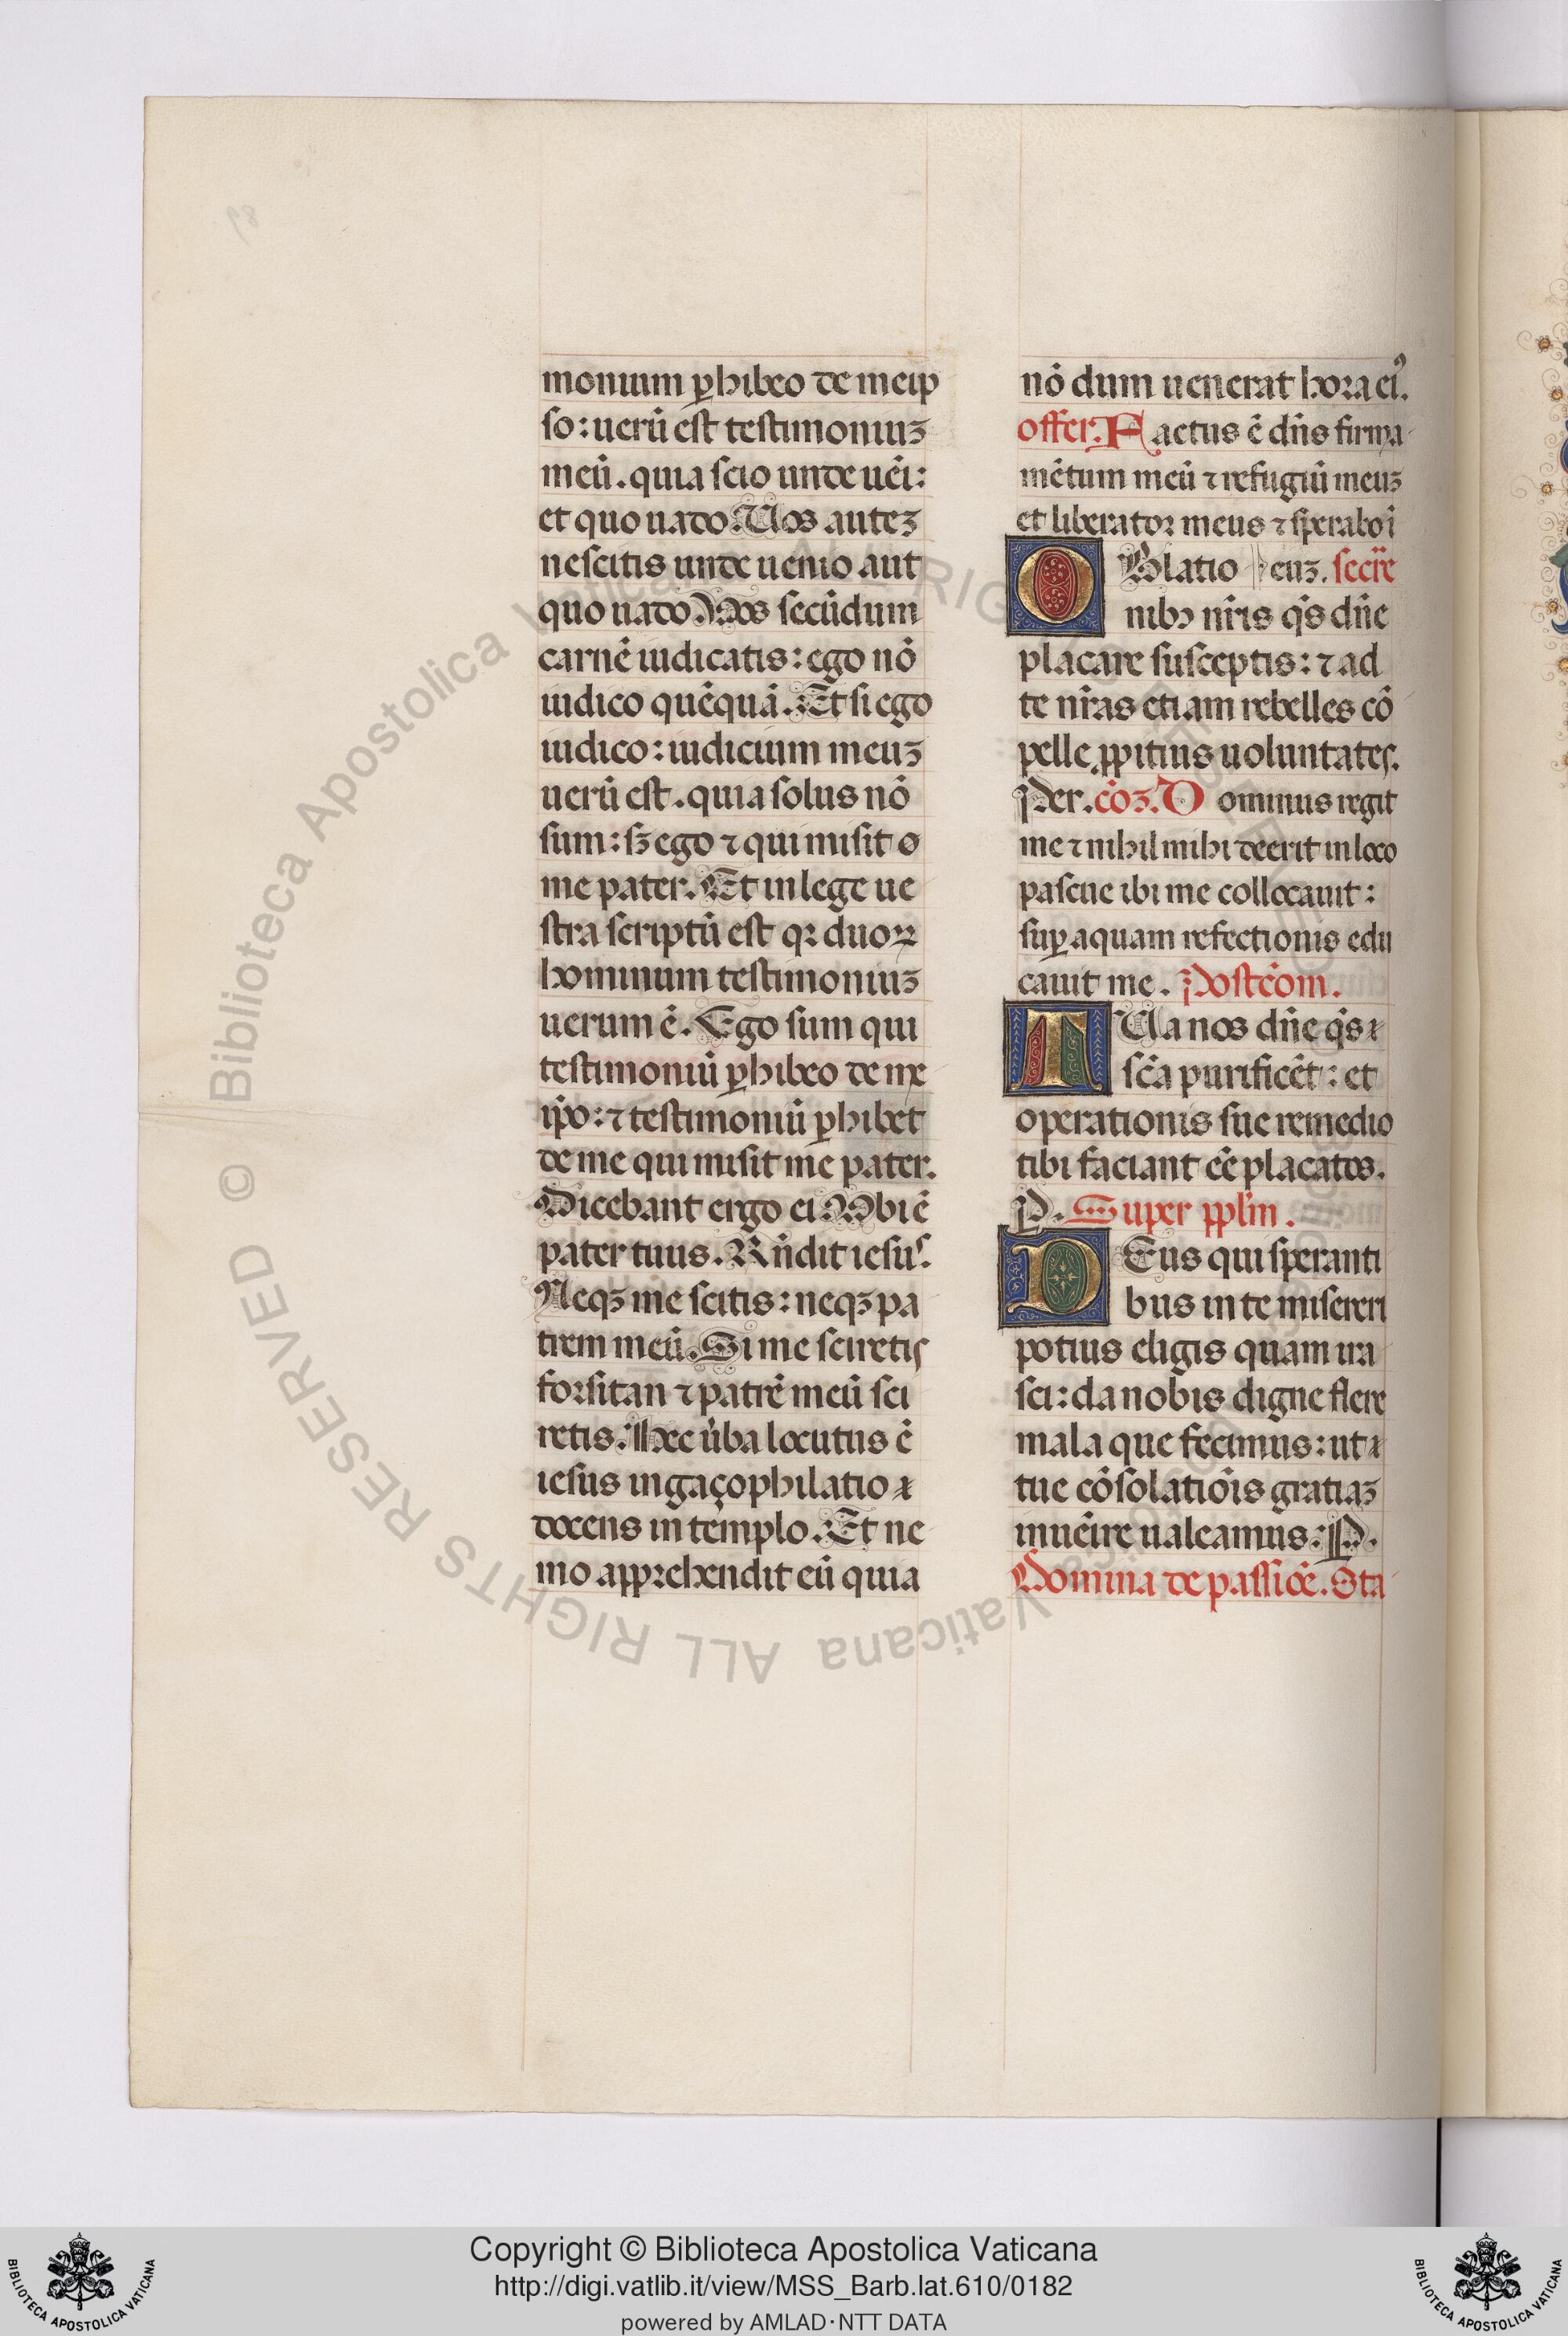 monium ꝑhibeo de meip
so: uerū est testimoniuꝫ
meū. quia scio unde uēi:
et quo uado. Uos auteꝫ
nescitis unde uenio aut
quo uado. Uos secūdum
carnē iudicatis: ego nō
iudico quēquā. Et si ego
iudico: iudicium meuꝫ
uerū est. quia solus nō
sum: sꝫ ego ⁊ qui misit
me pater. Et in lege ue
stra scriptū est qꝛ duoꝝ
hominum testimoniuꝫ
uerum ē. Ego sum qui
testimoniū ꝑhibeo de me
ip̄o: ⁊ testimoniū ꝑhibet
de me qui misit me pater.
Dicebant ergo ei. Ubi ē
pater tuus. Rn̄dit iesus.
Neqꝫ me scitis: neqꝫ pa
trem meū. Si me sciretis
forsitan ⁊ patrē meū sci
retis. Hec ūba locutus ē
iesus in gaçophilatio
docens in templo. Et ne
mo apprehendit eū quia
nō dum uenerat hora eiꝰ.
offer. Factus ē dn̄s firma
mētum meū ⁊ refugiū meuꝫ
et liberator meus ⁊ sperabo ī
OBlatio euꝫ. secre
nibꝫ nr̄is q̄s dn̄e
placare susceptis: ⁊ ad
te nr̄as etiam rebelles cō
pelle ꝓpitius uoluntates.
Per. cōꝫ. Dominus regit
me ⁊ nihil mihi deerit in loco
pascue ibi me collocauit:
suꝑ aquam refectionis edu
cauit me. Postcōm.
TUa nos dn̄e q̄s
sc̄a purificēt: et
operationis sue remedio
tibi faciant eē placatos.
P. Super pplm̄.
DEus qui speranti
bus in te misereri
potius eligis quam ira
sci: da nobis digne flere
mala que fecimus: ut
tue cōsolatiōis gratiaꝫ
inuēire ualeamus. P.
Domina de passiōe. Sta
Copyright © Biblioteca Apostolica Vaticana
http://digi.vatlib.it/view/MSS_Barb.lat.610/0182
powered by AMLAD·NTT DATA
BIBLIOTECA APOSTOLICA VATICANA
BIBLIOTECA APOSTOLICA VATICANA
© Biblioteca Apostolica Vaticana ALL RIGHTS RESERVED